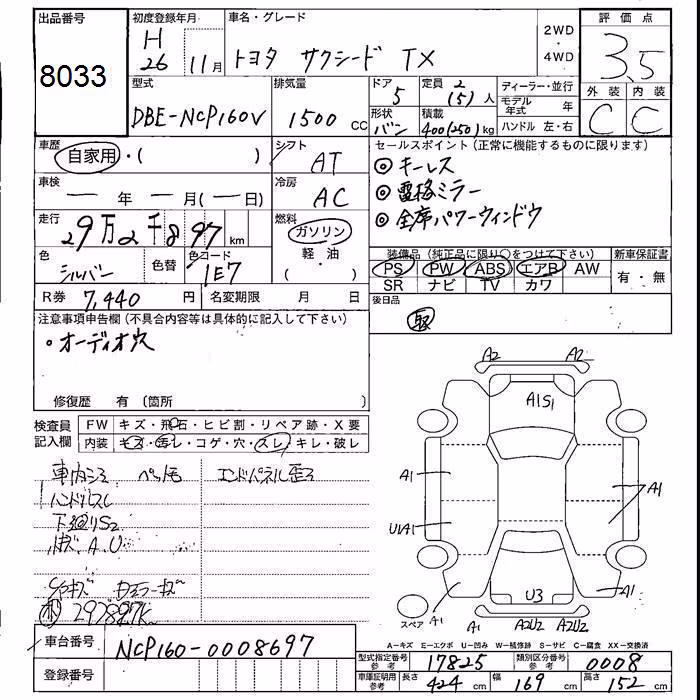 出品番号
8033
初度登録年月
H
26 11月
車名・グレード
トヨタ サクシード TX
2WD
・
4WD
評価点
3.5
外装 内装
C C
型式
DBE-NCP160V
排気量
1500 CC
ドア
5
形状
バン
定員 2
(5)人
積載
400(250)kg
ディーラー・並行
モデル年式 年
ハンドル 左・右
車歴
自家用・( )
シフト
AT
車検
ー 年 ー 月(ー日)
冷房
AC
走行
29万2千897 km
燃料
ガソリン
・
軽・油
( )
色
シルバー
色替
色コード
1E7
R券 7,440 円
名変期限 月 日
セールスポイント(正常に機能するものに限ります)
◎キーレス
◎電格ミラー
◎全席パワーウィンドウ
装備品(純正品に限り○をつけて下さい)
PS PW ABS エアB AW
SR ナビ TV カワ
新車保証書
有・無
後日品
取
注意事項申告欄(不具合内容等は具体的に記入して下さい)
・オーディオ穴
修復歴 有(箇所 )
検査員
記入欄
FW キズ・飛石・ヒビ割・リペア跡・X要
内装 キズ・汚レ・コゲ・穴・スレ・キレ・破レ
エンドパネル歪ミ
ハンドルスレ
下廻りS2
A2 A2
A1S1
A1
A1
U1A1
U3
A1
A1
A2U2 A2U2
スペア
A-キズ E-エクボ U-凹み W-補修跡 S-サビ C-腐食 XX-交換済
車台番号 NCP160-0008697
登録番号
型式指定番号 参考 17825 類別区分番号 参考 0008
車庫証明用 参考 長さ 424 cm 幅 169 cm 高さ 152 cm